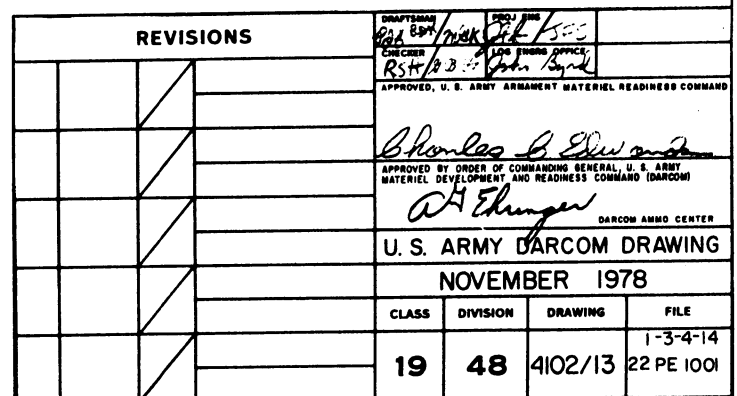 REVISIONS
DRAFTSMAN
PROJ ENG
CHECKER
LOG ENGRS OFFICE
RSH
John Byrd
APPROVED, U. S. ARMY ARMAMENT MATERIEL READINESS COMMAND
Charles C.
APPROVED BY ORDER OF COMMANDING GENERAL, U. S. ARMY
MATERIEL DEVELOPMENT AND READINESS COMMAND (DARCOM)
DARCOM AMMO CENTER
U. S. ARMY DARCOM DRAWING
NOVEMBER 1978
CLASS DIVISION DRAWING FILE
1-3-4-14
19 48 4102/13 22 PE 1001